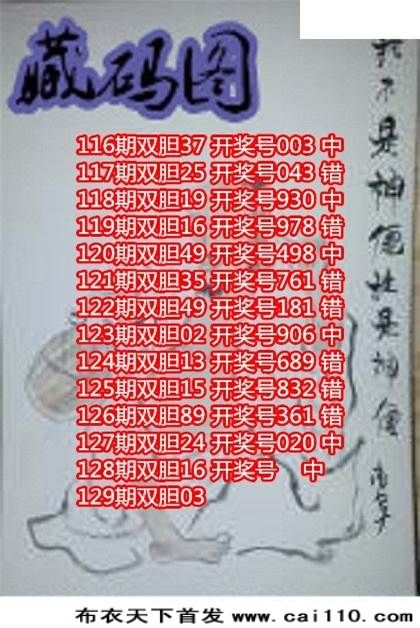 藏码图
116期双胆37 开奖号003 中
117期双胆25 开奖号043 错
118期双胆19 开奖号930 中
119期双胆16 开奖号978 错
120期双胆49 开奖号498 中
121期双胆35 开奖号761 错
122期双胆49 开奖号181 错
123期双胆02 开奖号906 中
124期双胆13 开奖号689 错
125期双胆15 开奖号832 错
126期双胆89 开奖号361 错
127期双胆24 开奖号020 中
128期双胆16 开奖号 中
129期双胆03
不是神 是神
布衣天下首发 www.cai110.com